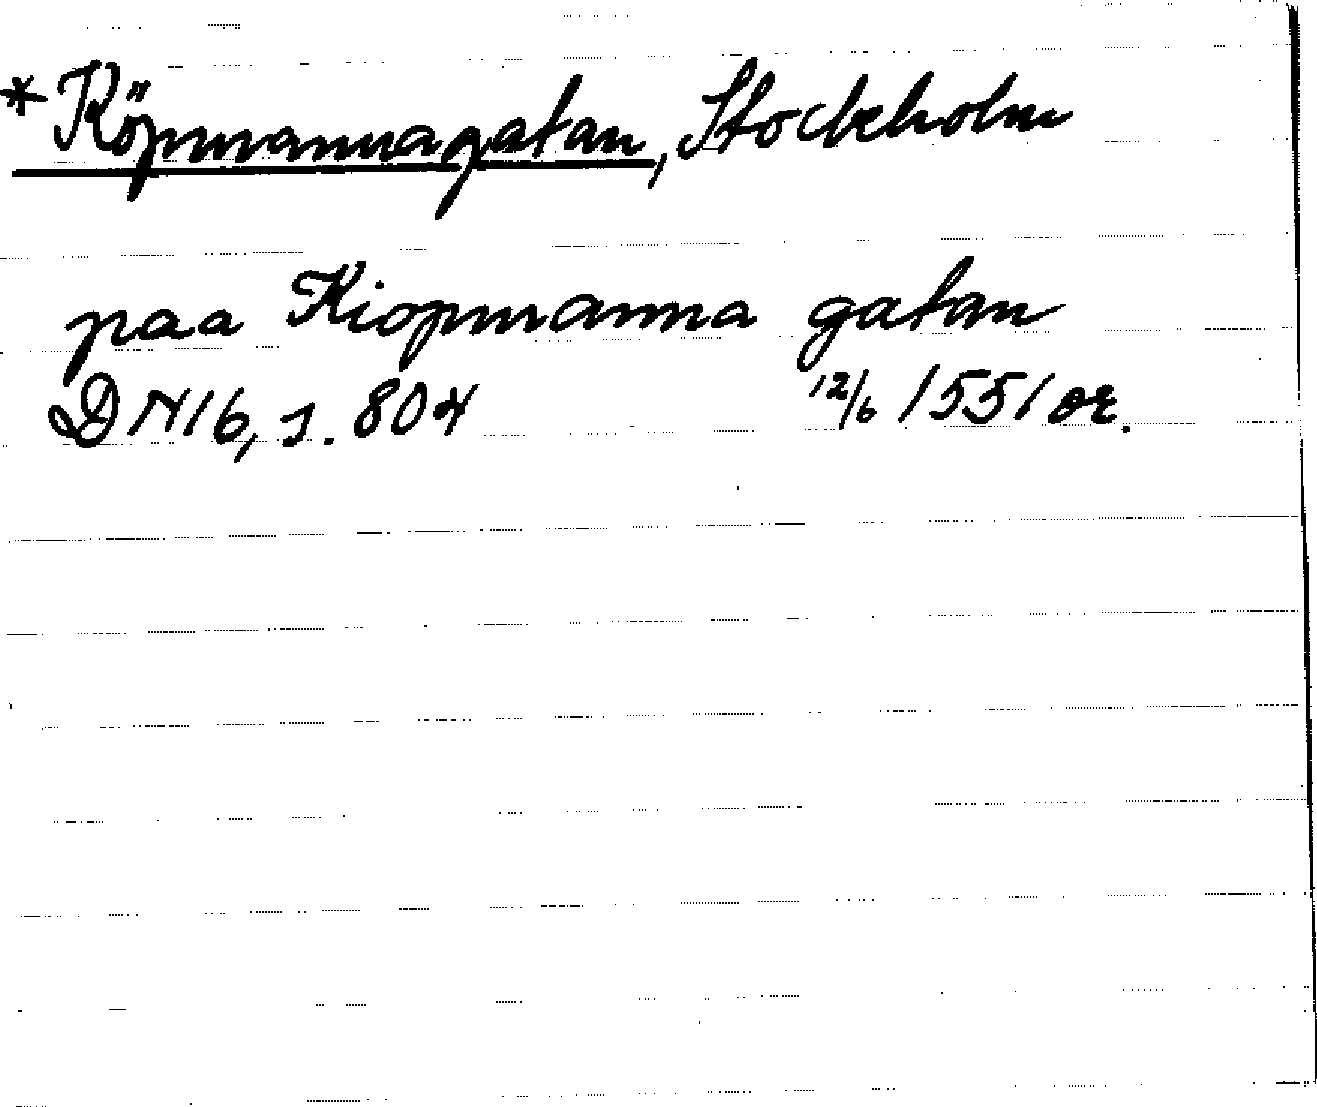 *Köpmannagatan, Stockholm
paa Kiopmanna gatan
DN16, s. 804 12/6 1551 or.